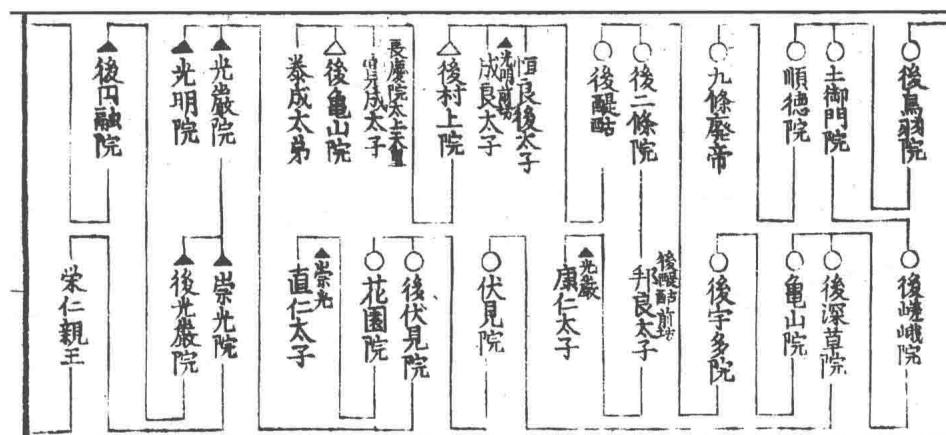 後鳥羽院
土御門院
順徳院
九條廃帝
後二條院
後醍醐
恒良後太子
成良太子
光明前坊
後村上院
長慶院太上天皇
成太子
後亀山院
泰成太弟
光厳院
光明院
後円融院
後嵯峨院
後深草院
亀山院
後宇多院
後醍醐前坊
邦良太子
光厳
康仁太子
伏見院
後伏見院
花園院
崇光
直仁太子
崇光院
後光厳院
栄仁親王